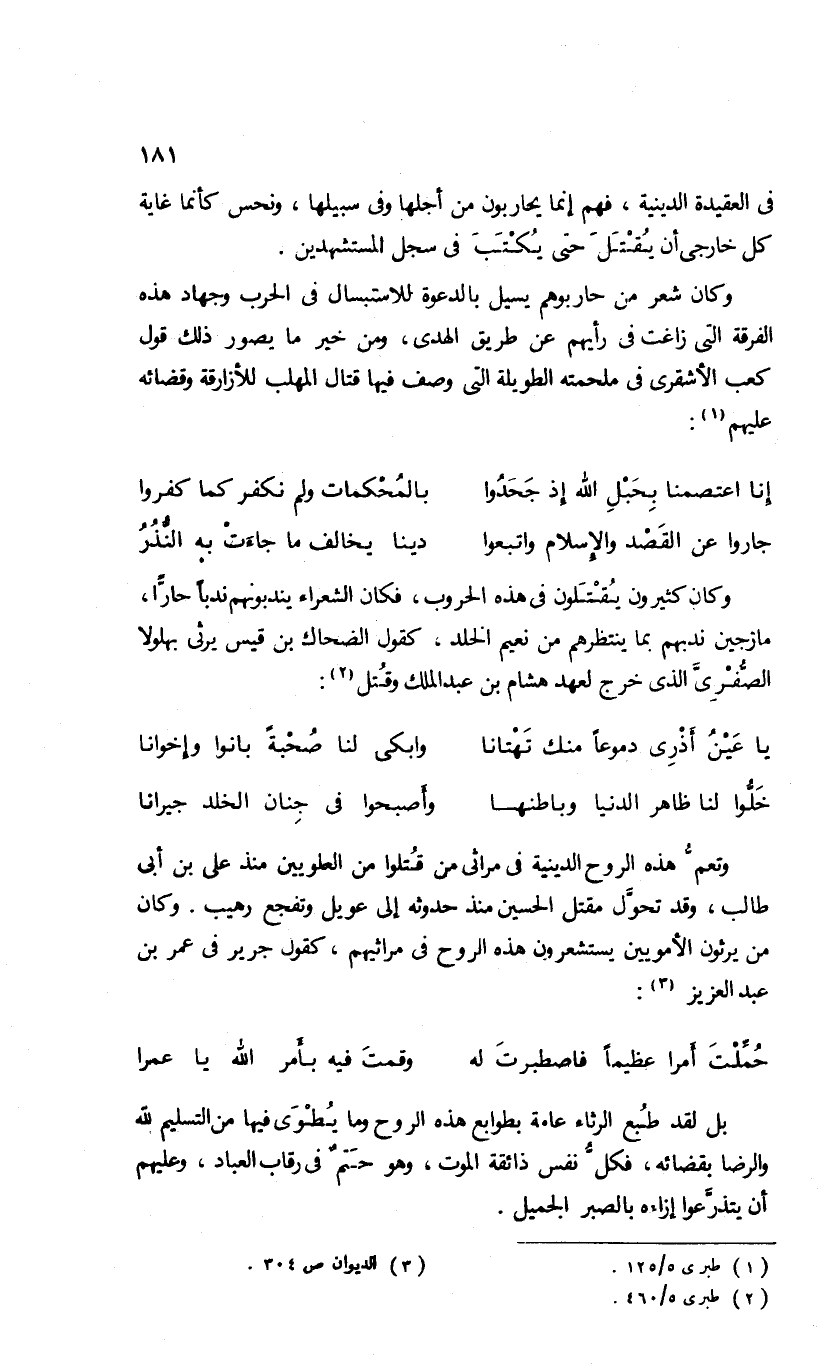 ١٨١
فى العقيدة الدينية ، فهم إنما يحاربون من أجلها وفى سبيلها ، ونحس كأنما غاية
كل خارجى أن يُقْتَلَ حتى يُكْتَبَ فى سجل المستشهدين .
وكان شعر من حاربوهم يسيل بالدعوة للاستبسال فى الحرب وجهاد هذه
الفرقة التى زاغت فى رأيهم عن طريق الهدى ، ومن خير ما يصور ذلك قول
كعب الأشقرى فى ملحمته الطويلة التى وصف فيها قتال المهلب للأزارقة وقضائه
عليهم (١) :
إنا اعتصمنا بِحَبْلِ الله إذ جَحَدُوا بالمُحْكمات ولم نكفر كما كفروا
جاروا عن القَصْد والإسلام واتبعوا دينا يخالف ما جاءَتْ به النُّذُرُ
وكان كثيرون يُقْتَلون فى هذه الحروب ، فكان الشعراء يندبونهم ندباً حارًّا ،
مازجين ندبهم بما ينتظرهم من نعيم الخلد ، كقول الضحاك بن قيس يرثى بهلولا
الصُّفْرِىَّ الذى خرج لعهد هشام بن عبدالملك وقُتل (٢) :
يا عَيْنُ أَذْرِى دموعاً منك تَهْتانا وابكى لنا صُحْبةً بانوا وإخوانا
خَلُّوا لنا ظاهر الدنيا وباطنهــا وأَصبحوا فى جِنان الخلد جيرانا
وتعمُّ هذه الروح الدينية فى مراثى من قُتلوا من العلويين منذ على بن أبى
طالب ، وقد تحوَّل مقتل الحسين منذ حدوثه إلى عويل وتفجع رهيب . وكان
من يرثون الأمويين يستشعرون هذه الروح فى مراثيهم ، كقول جرير فى عمر بن
عبد العزيز (٣) :
حُمِّلْتَ أَمرا عظيماً فاصطبرتَ له وقمتَ فيه بأَمر الله يا عمرا
بل لقد طُبع الرثاء عامة بطوابع هذه الروح وما يُطْوَى فيها من التسليم لله
والرضا بقضائه ، فكلُّ نفس ذائقة الموت ، وهو حَتْمٌ فى رقاب العباد ، وعليهم
أن يتذرَّعوا إزاءه بالصبر الجميل .
(١) طبرى ١٢٥/٥ . (٣) الديوان ص ٣٠٤ .
(٢) طبرى ٤٦٠/٥ .